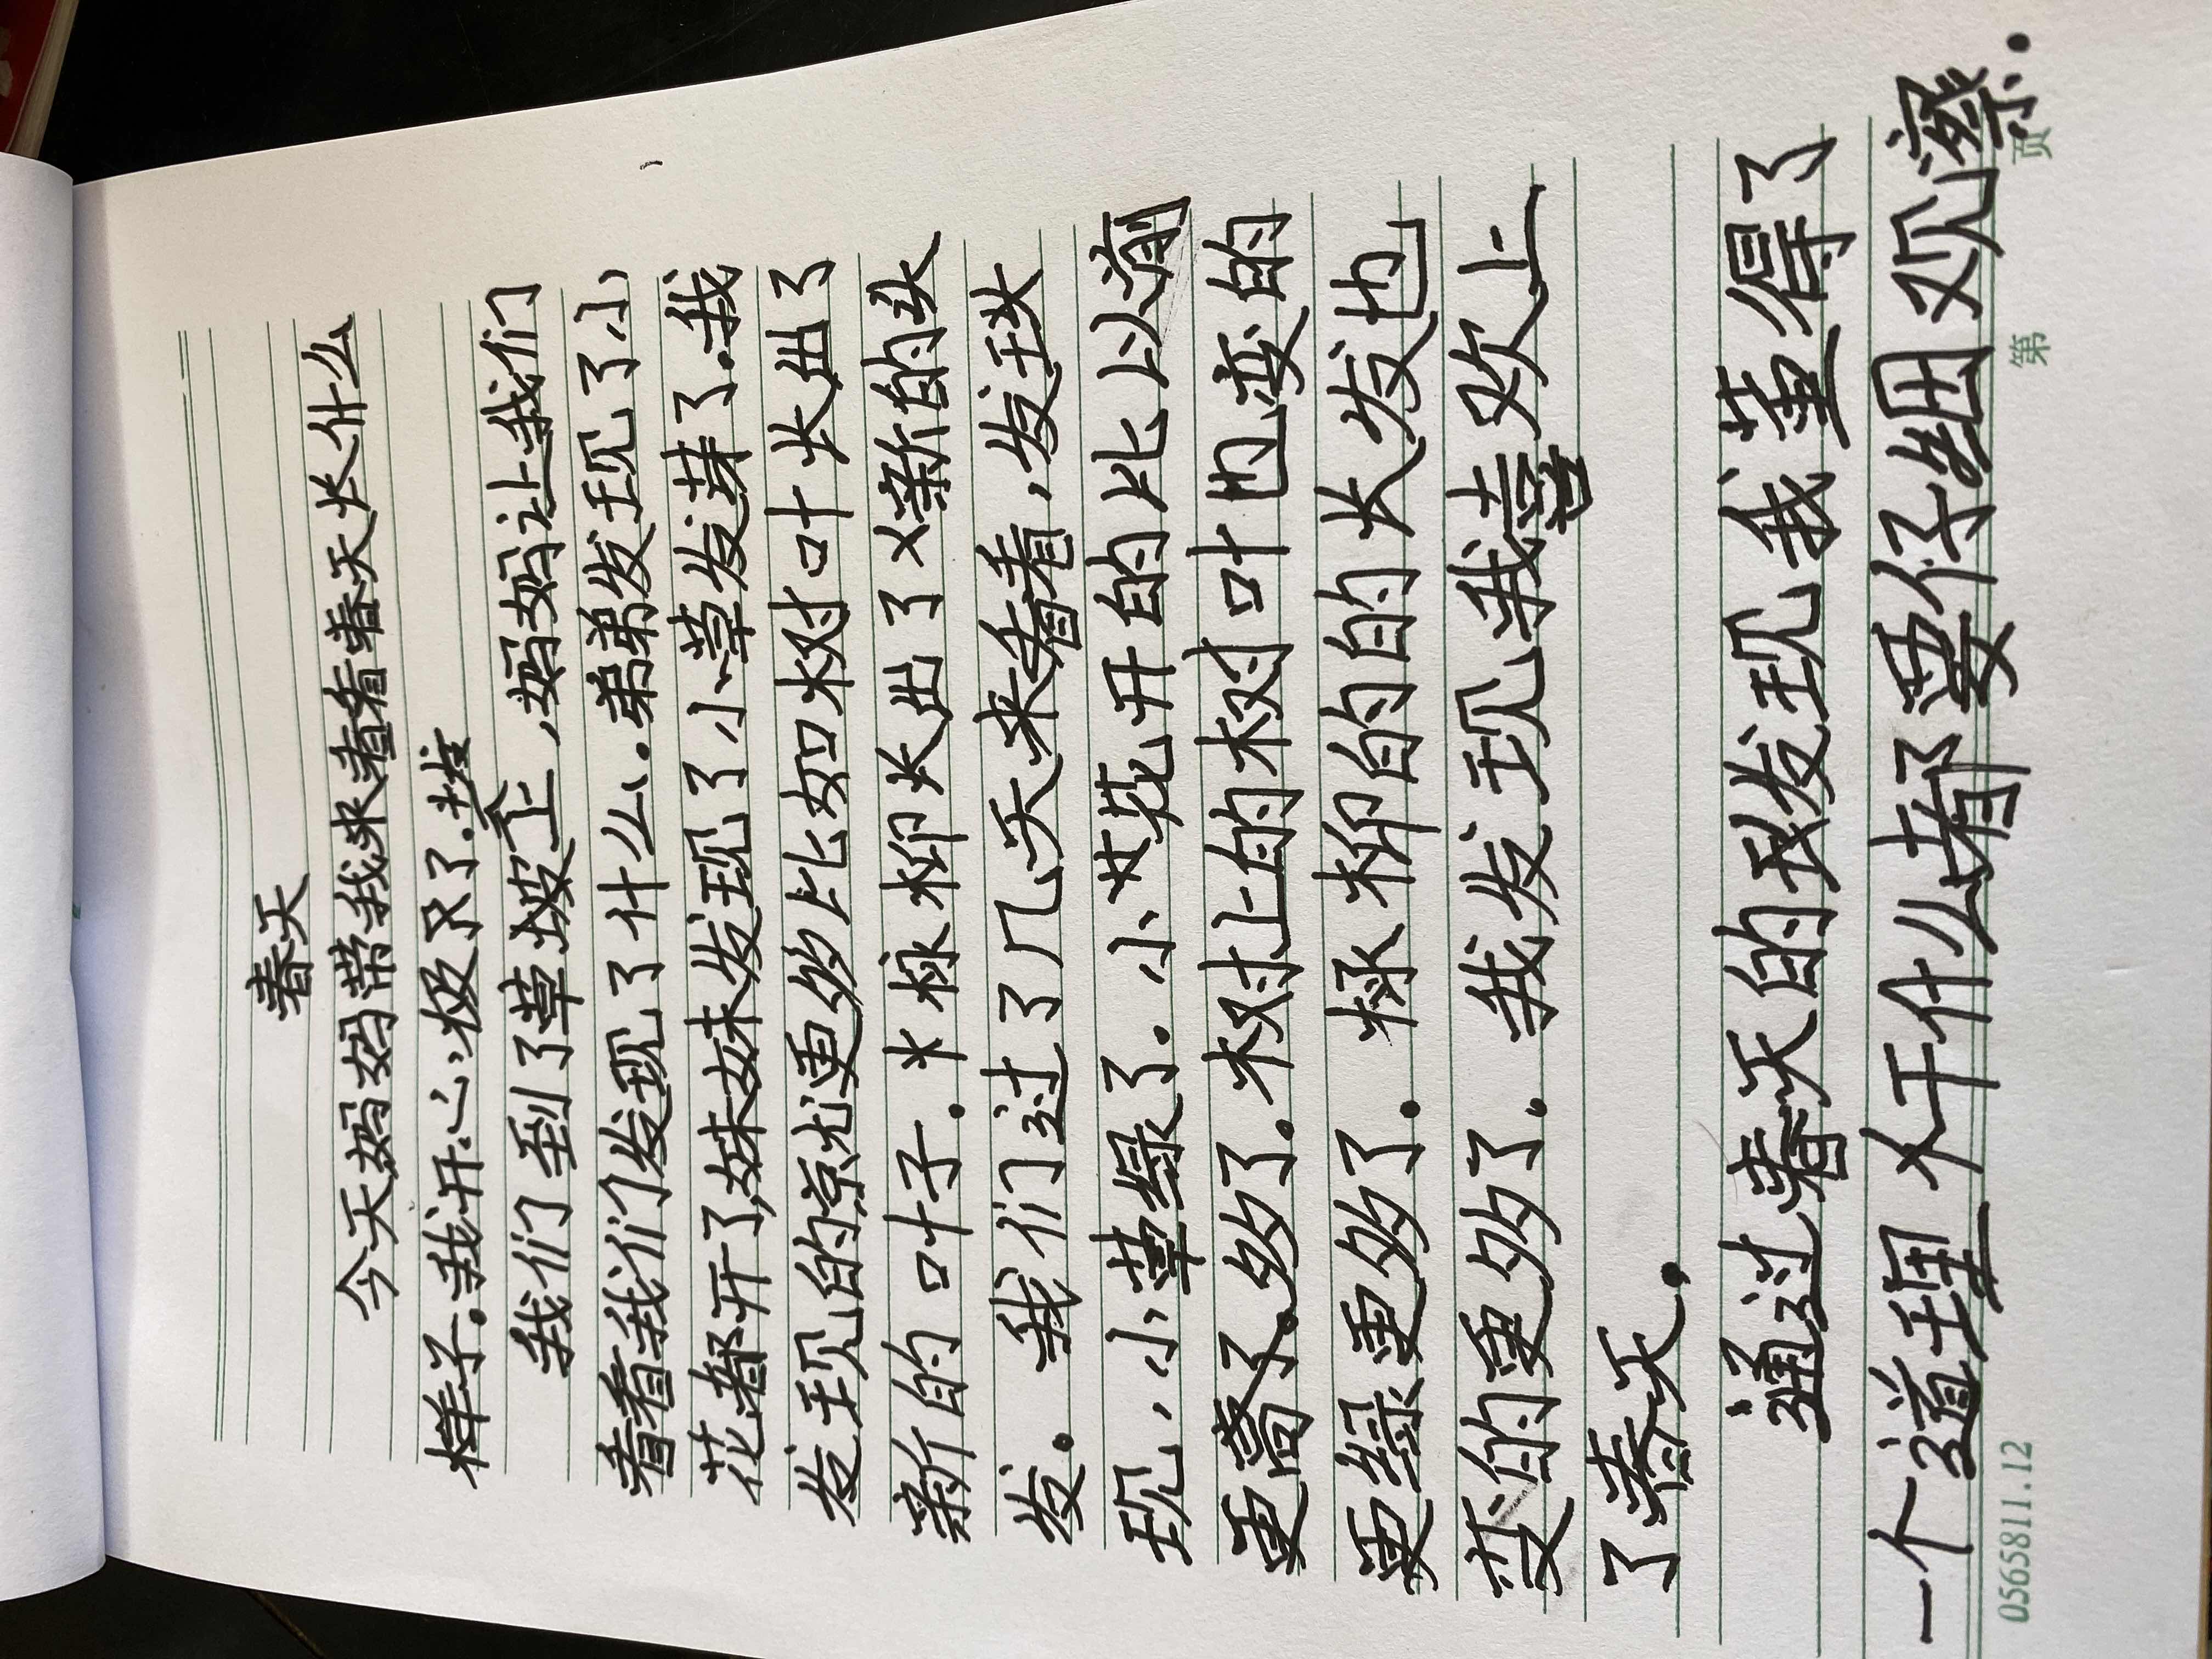 春天
今天妈妈带我来看看春天长什么
样子.我开心极了.
我们了到了草坡上,妈妈让我们
看看我们发现了什么.弟弟发现了小
花都开了,妹妹发现了小草发芽了.我
发现的京尤更多比如树叶长出了
新的叶子.柳长出了新的头
发.我们过了几天来看看,发现
现,小草绿了.小花开的比以前
更多了.树上的树叶也变的
更绿更多了.柳的的长发也
变的更多了.我发现我喜欢上
了春天.
通过春天的我发现我董得了
一个道理 干什么都要仔细观察.
0565811.12 第 页